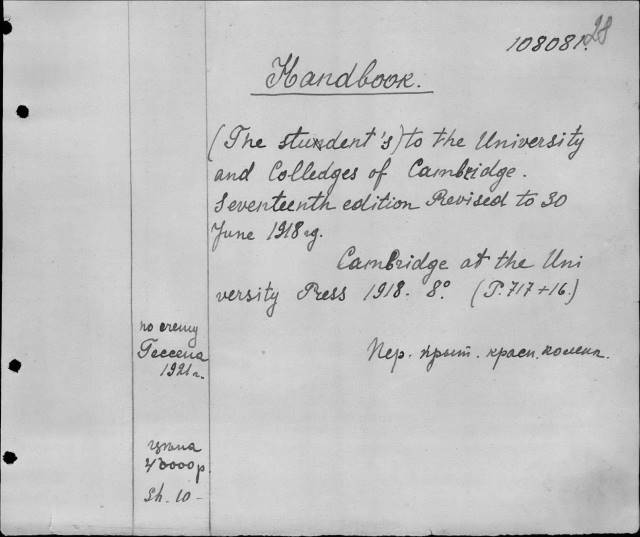 108081. 28
Handbook.
(The student's) to the University
and Colledges of Cambridge.
Seventeenth edition Revised to 30
June 1918 г.
Cambridge at the Uni
versity Press 1918. 8° (P. 717 + 16.)
по счету
Гессена
1921 г.
Пер. крыт. красн.
цена
р.
Sh. 10-